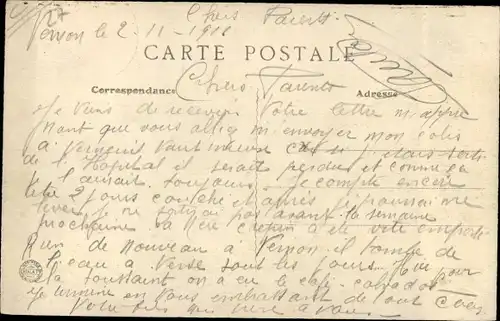 27
Chers Parents
Vernon le 2-11-1911
CARTE POSTALE
Correspondance
Adresse
Chers Parents
Je viens de recevoir Votre lettre m'appre
nant que vous allez m'envoyer mon colis
à Verneuil Vaut mieux car si j'étais sorti
de l'Hopital il serait perdu et comme ça
je l'aurait toujours. Je compte encore
être 2 jours couché et après je pourrai me
lever je ne sortirai pas avant la semaine
prochaine la Mère est
Rien de Nouveau à Vernon il tombe de
l'eau à Verse tout les jours. Hier pour
la toussaint on a eu le café calvados
Je termine en Vous embrassant de tout Cœur
Votre fils qui